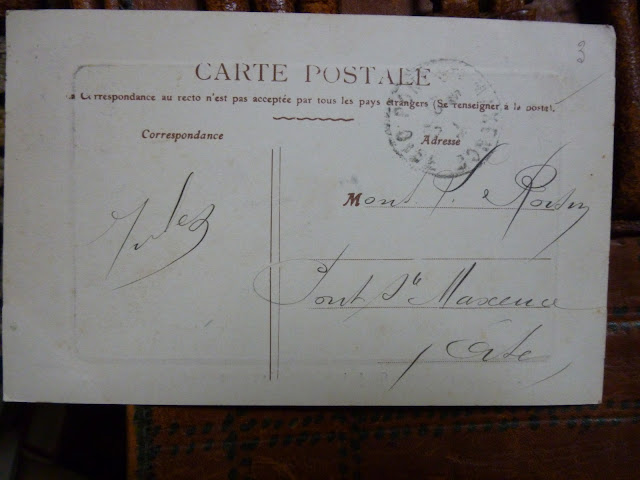 3
CARTE POSTALE
La Correspondance au recto n'est pas acceptée par tous les pays étrangers (Se renseigner à la poste).
Correspondance
Adresse
Jules
Mons
Pont Ste Maxence